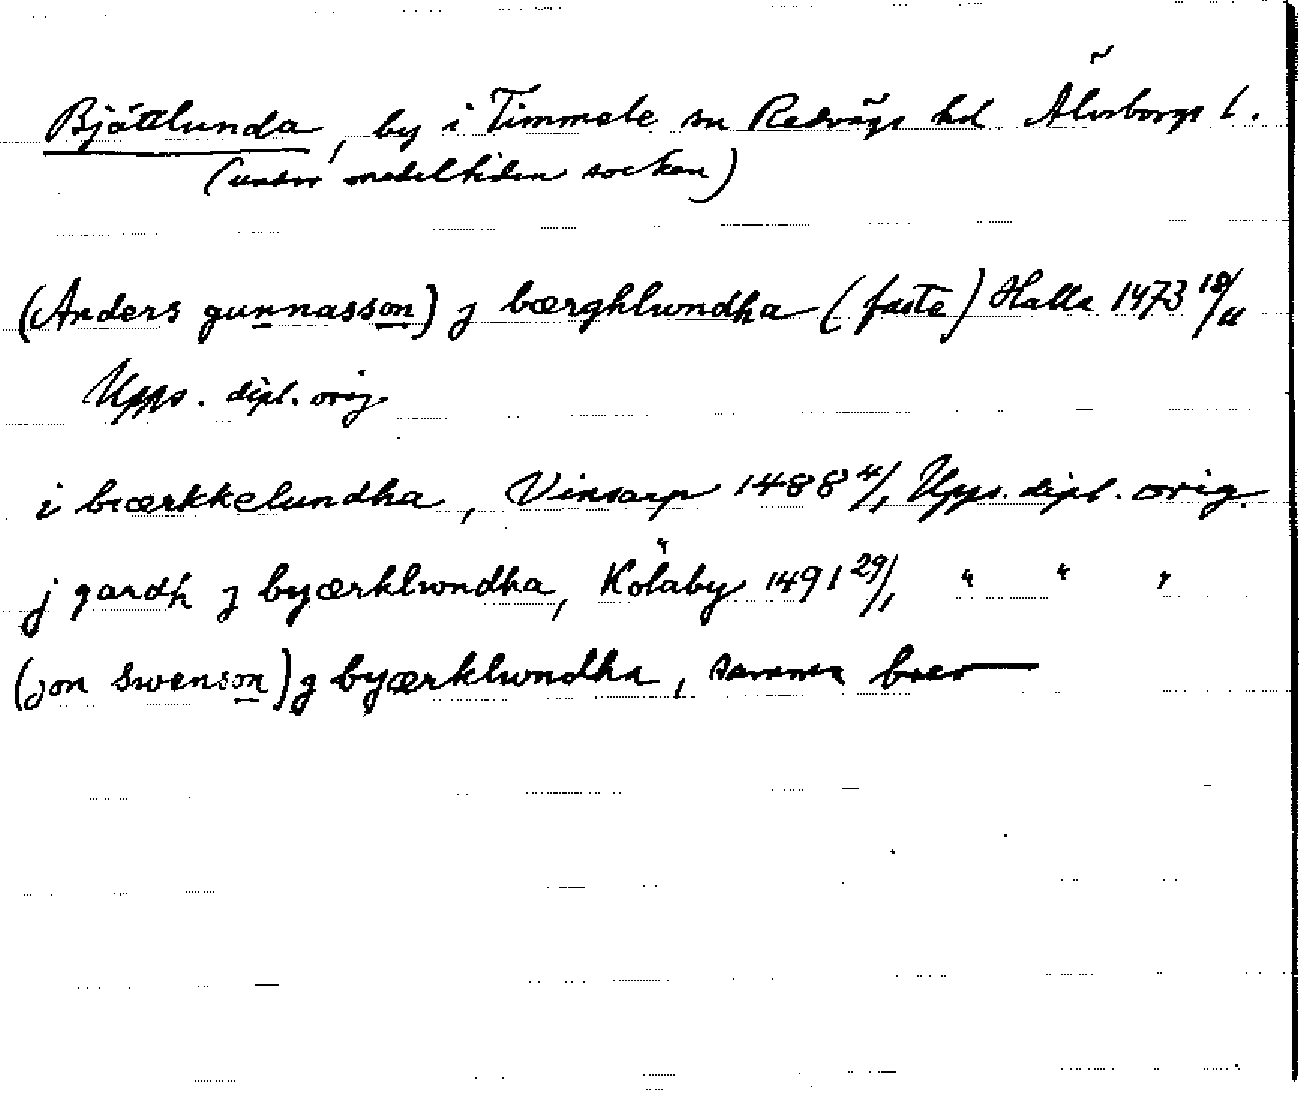 Bjättlunda, by i Timmele sn Redvägs hd Älvsborgs l.
(under medeltiden socken)
(Anders gunnasson) j bærghlundha (faste) Halla 1473 18/11
Upps. dipl. orig
i biærkkelundha, Vinsarp 1488 4/1 Upps. dipl. orig.
j gardh j byærklwndha, Kölaby 1491 29/1 " " "
(jon swenson) j byærklwndha, samma brev